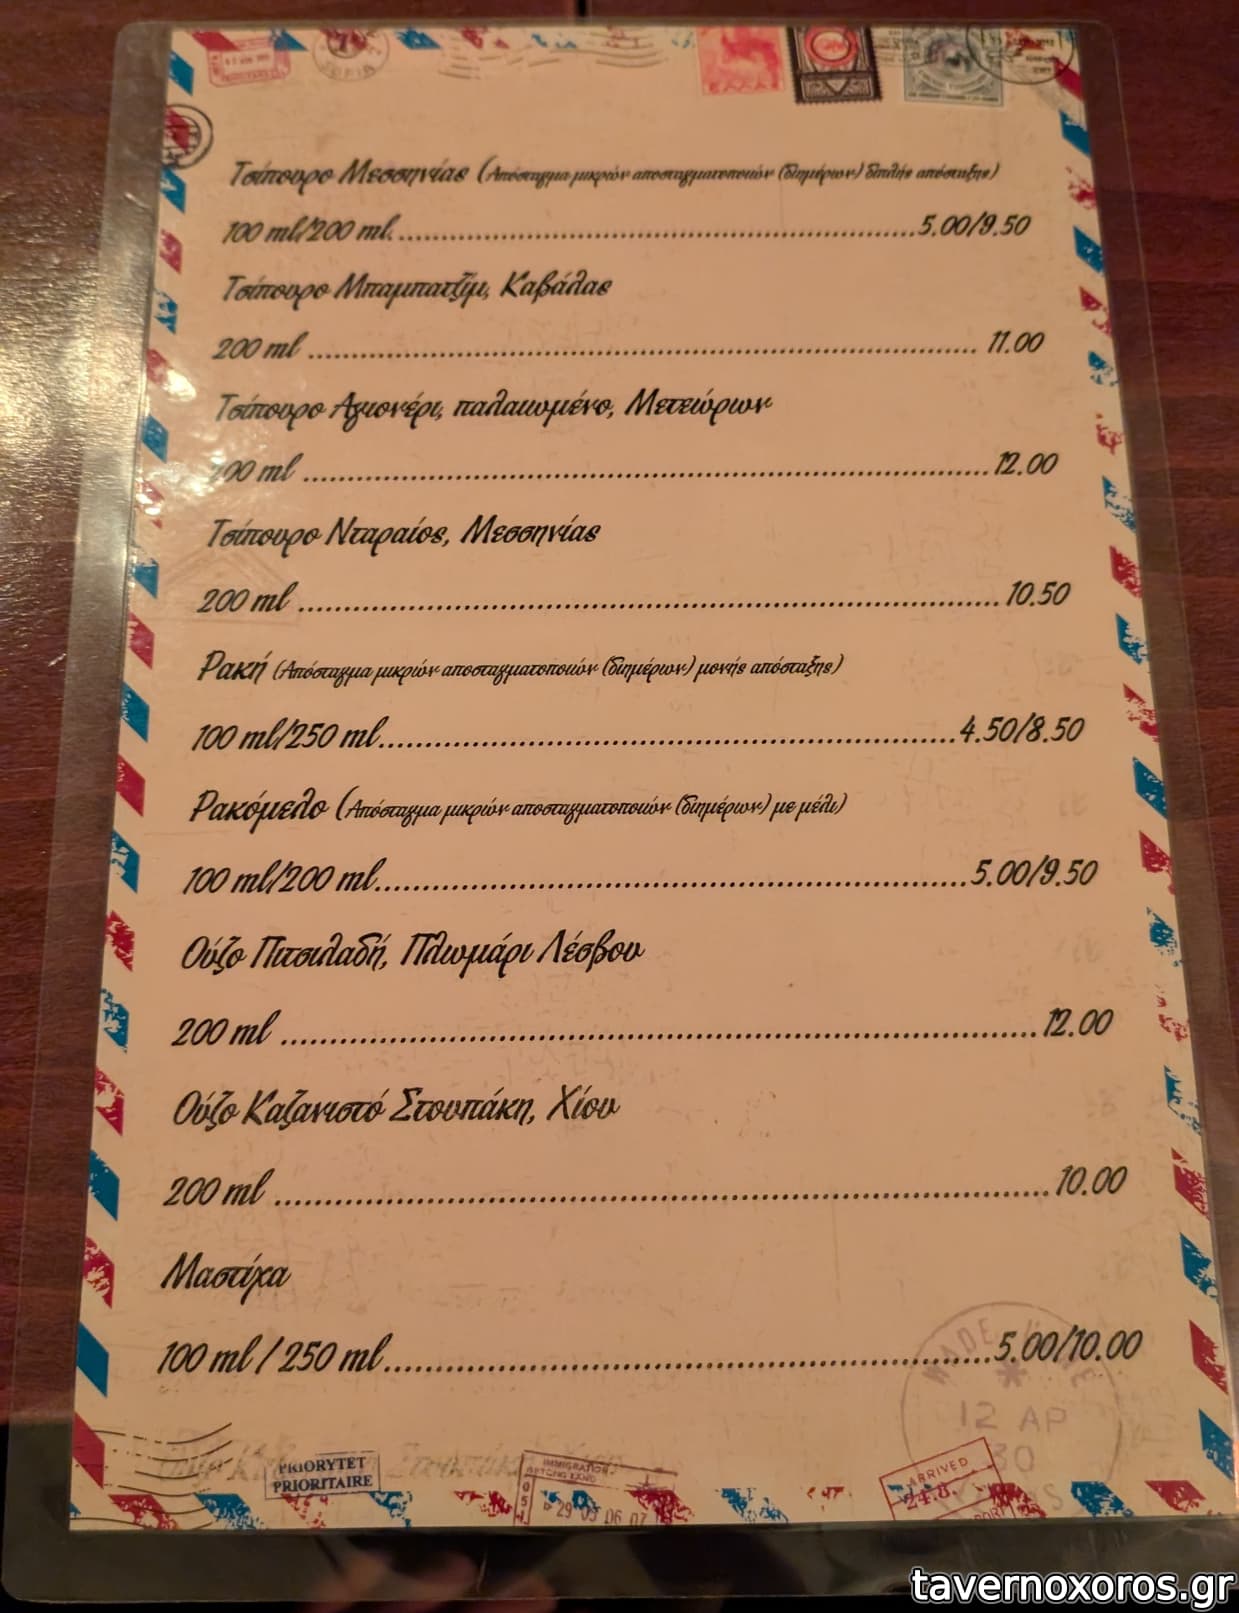 ΕΛΛΑΣ
Τσίπουρο Μεσσηνίας (Απόσταγμα μικρών αποσταγματοποιών (διημέρων) διπλής απόσταξης)
100 ml/200 ml.......5.00/9.50
Τσίπουρο Μπαμπατζίμ, Καβάλας
200 ml ....... 11.00
Τσίπουρο Αγιονέρι, παλαιωμένο, Μετεώρων
200 ml .......12.00
Τσίπουρο Νταραίος, Μεσσηνίας
200 ml ....... 10.50
Ρακή (Απόσταγμα μικρών αποσταγματοποιών (διημέρων) μονής απόσταξης)
100 ml/250 ml.......4.50/8.50
Ρακόμελο (Απόσταγμα μικρών αποσταγματοποιών (διημέρων) με μέλι)
100 ml/200 ml.......5.00/9.50
Ούζο Πιτσιλαδή, Πλωμάρι Λέσβου
200 ml .......12.00
Ούζο Καζανιστό Στουπάκη, Χίου
200 ml .......10.00
Μαστίχα
100 ml / 250 ml.......5.00/10.00
MADE
12 AP
30
PRIORYTET
PRIORITAIRE
IMMIGRATION
ARRIVED
tavernoxoros.gr